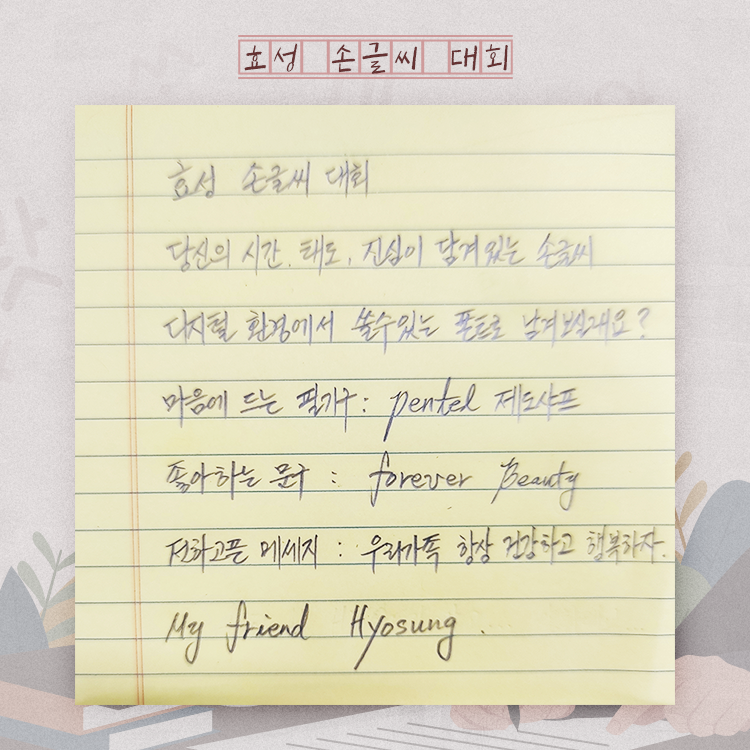 효성 손글씨 대회
효성 손글씨 대회
당신의 시간, 태도, 진심이 담겨있는 손글씨
디지털 환경에서 쓸수있는 폰트로 남겨보실래요?
마음에 드는 필기구 : pentel 제도샤프
좋아하는 문구 : forever Beauty
전하고픈 메세지 : 우리가족 항상 건강하고 행복하자.
My friend Hyosung.